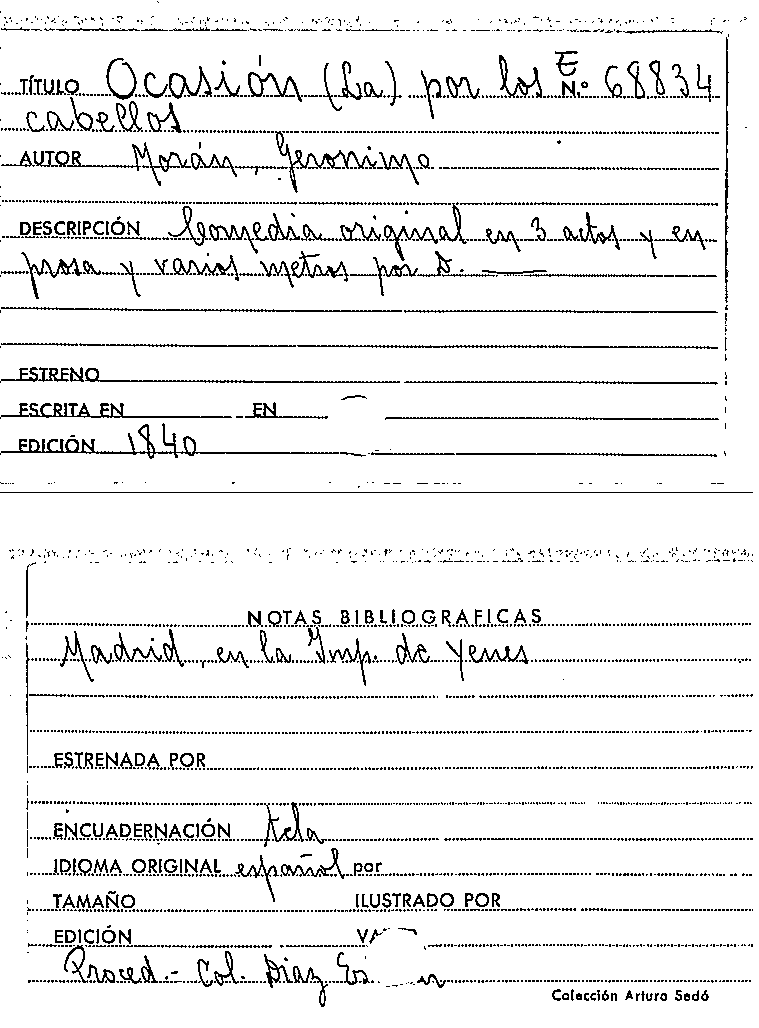 TÍTULO Ocasión (La) por los E N.º 68834
cabellos
AUTOR Morán, Geronimo
DESCRIPCIÓN Comedia original en 3 actos y en
prosa y varios metros por D. ———
ESTRENO
ESCRITA EN EN
EDICIÓN 1840
NOTAS BIBLIOGRAFICAS
Madrid, en la Imp. de Yenes
ESTRENADA POR
ENCUADERNACIÓN tela
IDIOMA ORIGINAL español por
TAMAÑO ILUSTRADO POR
EDICIÓN
Proced.- Col. Diaz
Colección Arturo Sedó